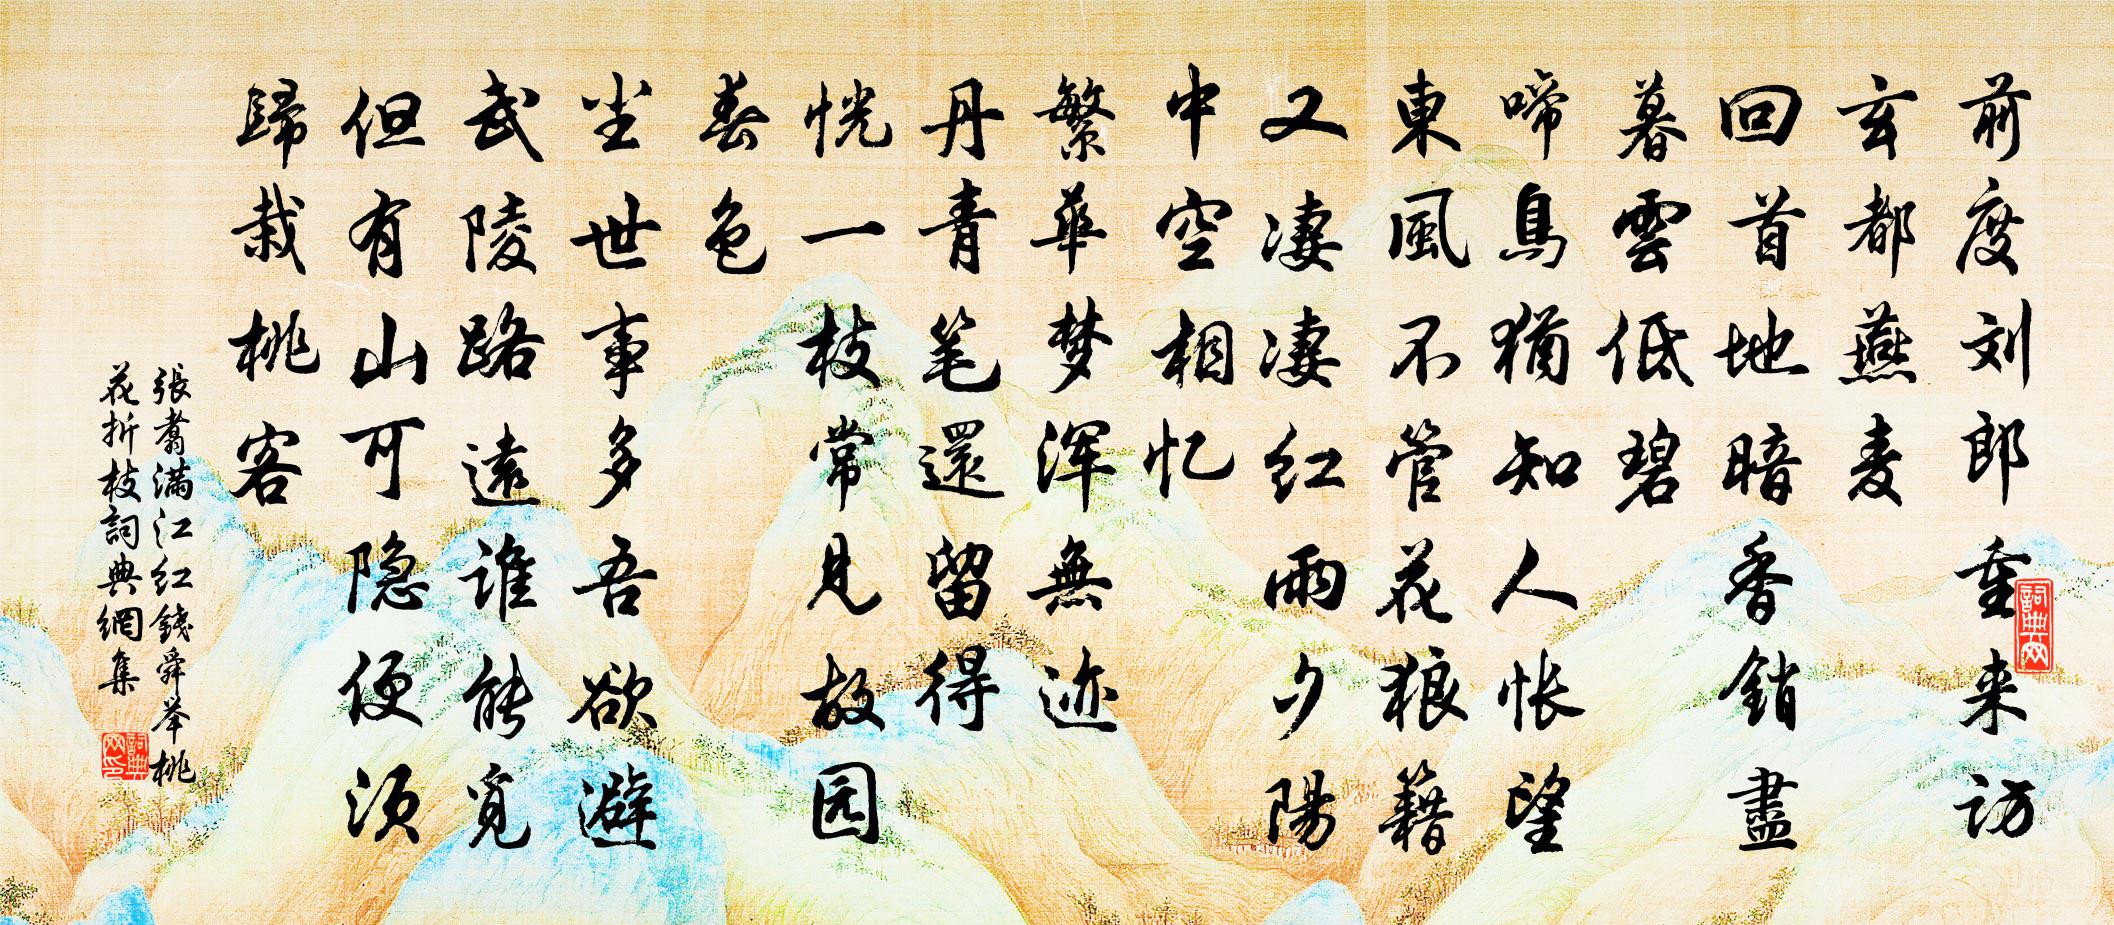 前度刘郎重来访
玄都燕麦
回首地暗香銷盡
暮雲低碧
啼鳥猶知人怅望
東風不管花狼籍
又凄凄红雨夕陽
中空相忆
繁華梦浑無迹
丹青笔還留得
恍一枝常见故园
春色
尘世事多吾欲避
武陵路遠谁能觅
但有山可隐便须
歸栽桃客
張翥满江红錢舜举桃
花折枝詞典網集
詞典网
詞典网印